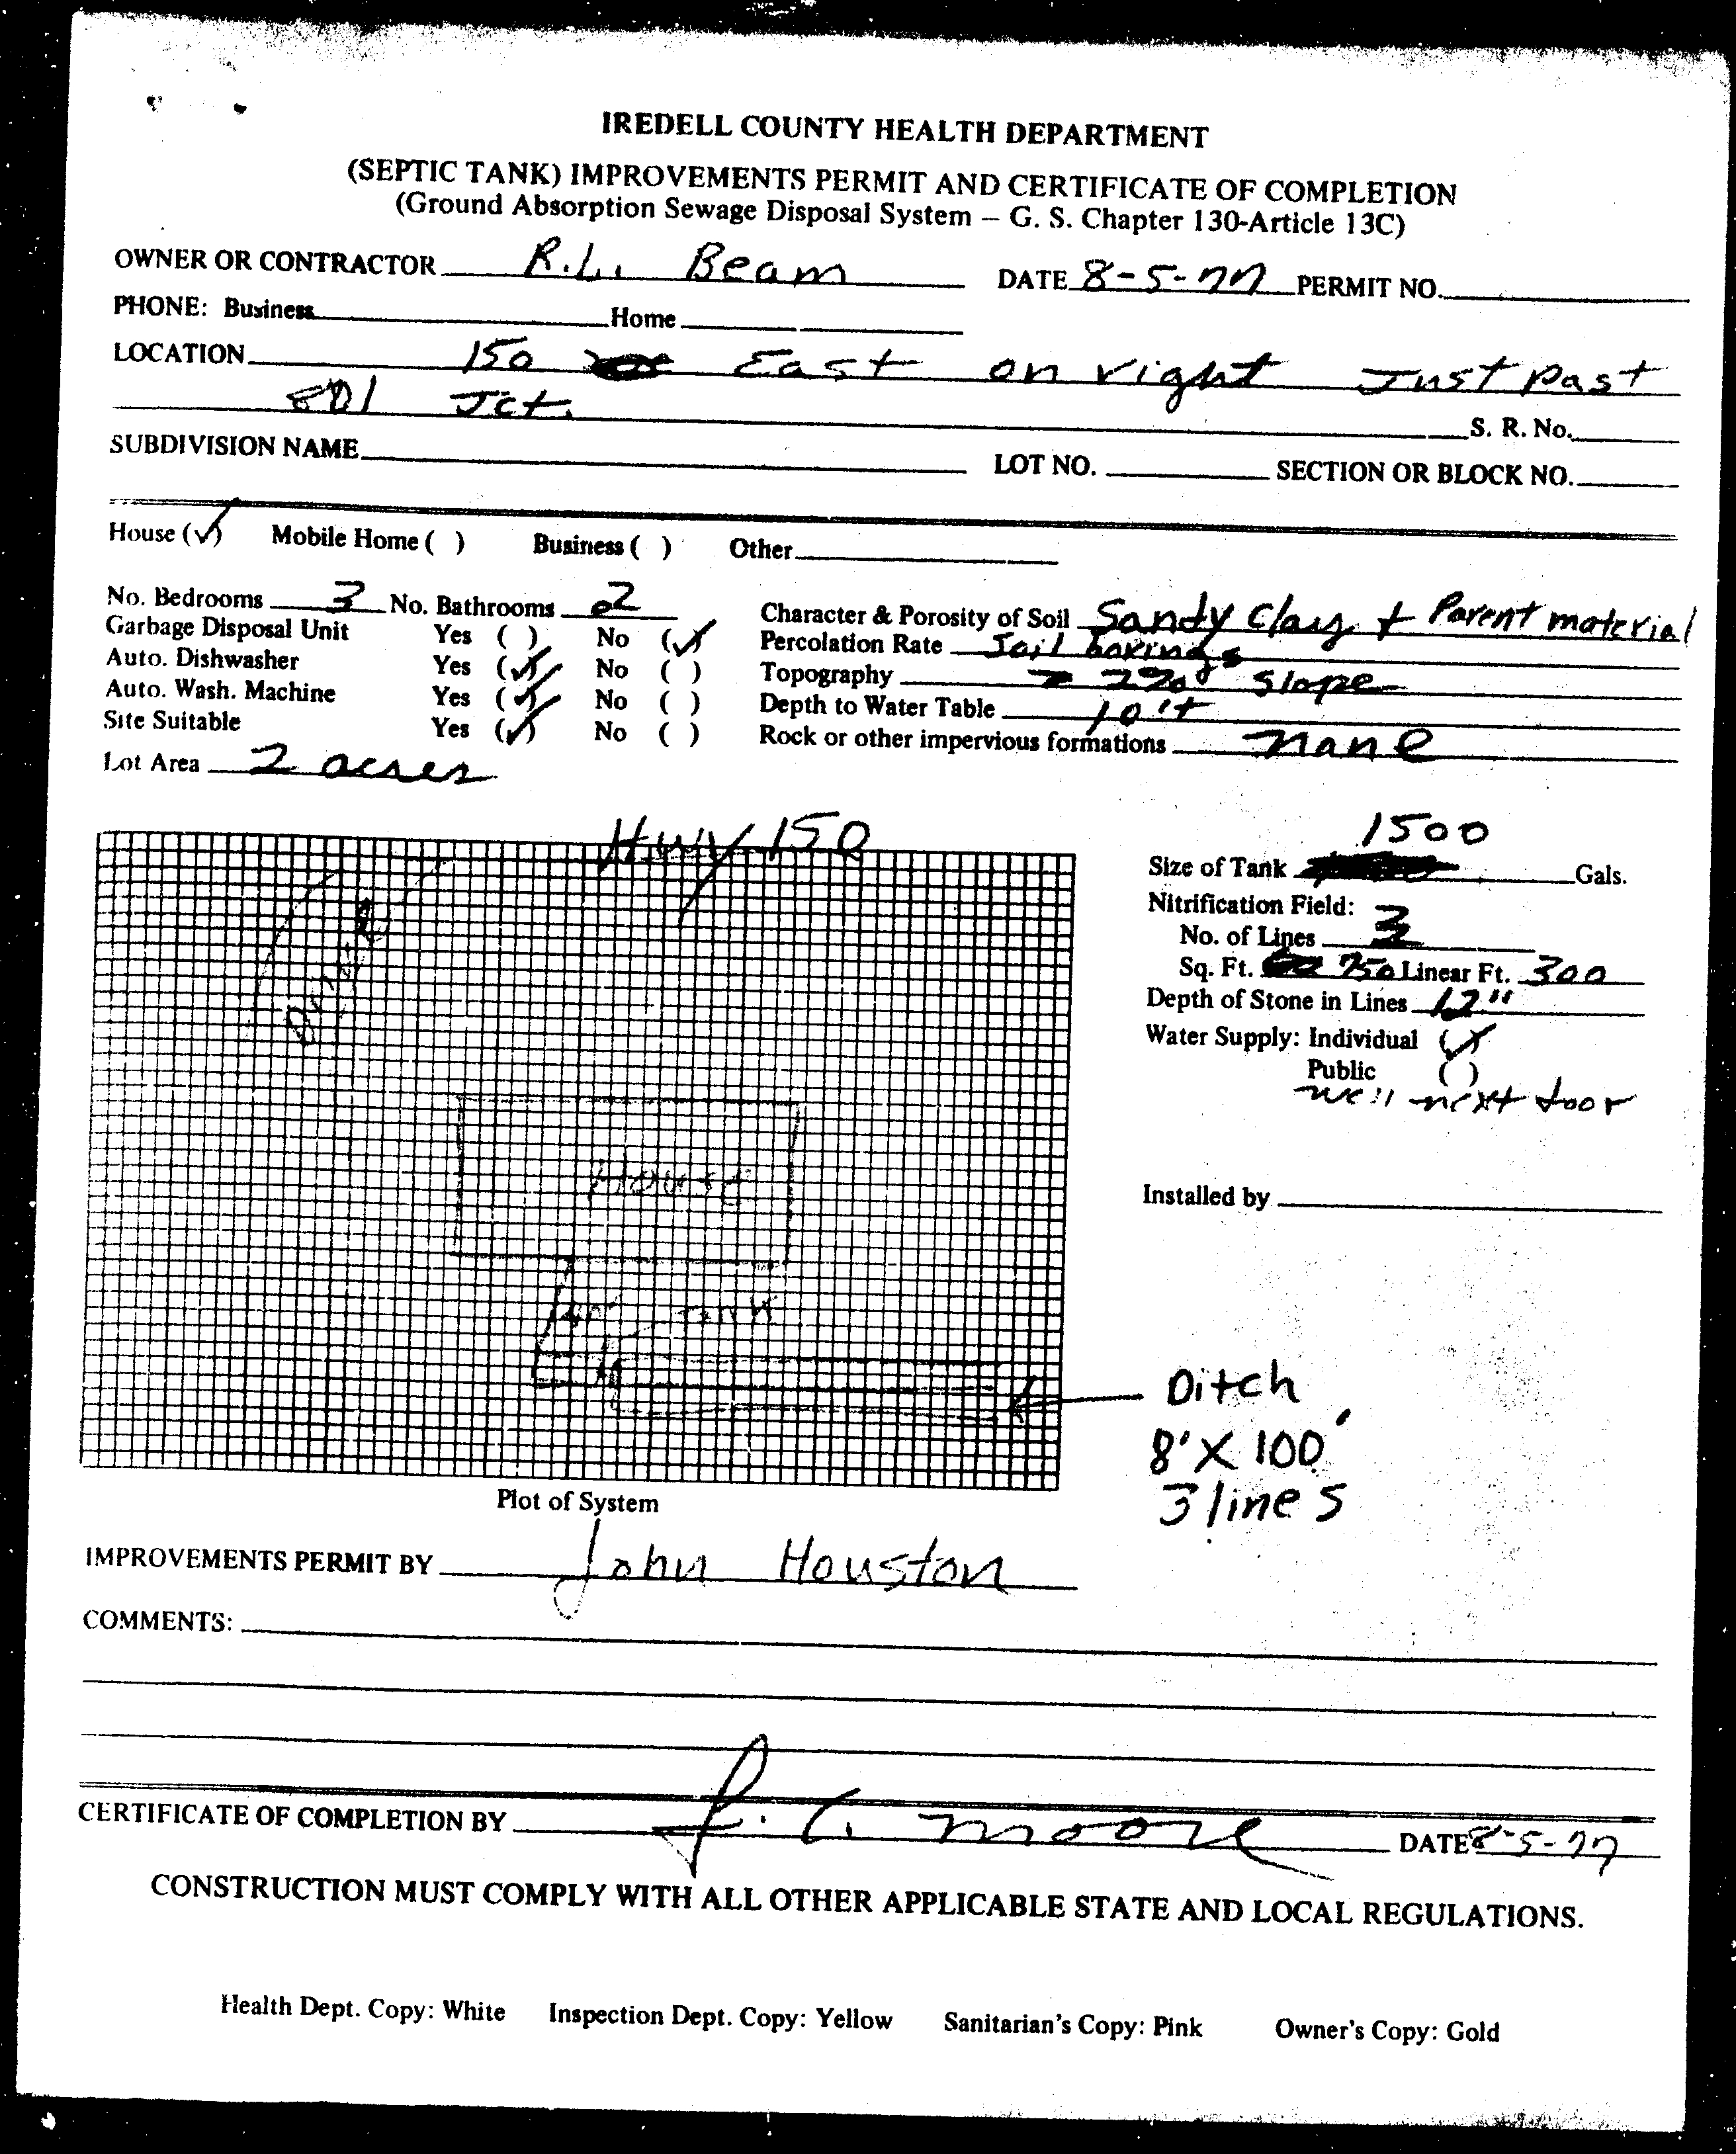 IREDELL COUNTY HEALTH DEPARTMENT
(SEPTIC TANK) IMPROVEMENTS PERMIT AND CERTIFICATE OF COMPLETION
(Ground Absorption Sewage Disposal System – G. S. Chapter 130-Article 13C)
OWNER OR CONTRACTOR R.L. Beam DATE 8-5-77 PERMIT NO.
PHONE: Business Home
LOCATION 150 East on right Just Past
801 Jct. S. R. No.
SUBDIVISION NAME LOT NO. SECTION OR BLOCK NO.
House (✓) Mobile Home ( ) Business ( ) Other
No. Bedrooms 3 No. Bathrooms 2
Garbage Disposal Unit Yes ( ) No (✓)
Auto. Dishwasher Yes (✓) No ( )
Auto. Wash. Machine Yes (✓) No ( )
Site Suitable Yes (✓) No ( )
Lot Area 2 acres
Character & Porosity of Soil Sandy Clay + Parent material
Percolation Rate Soil borings
Topography 2% slope
Depth to Water Table 10'+
Rock or other impervious formations none
Hwy 150
Drive
House
Tank
Plot of System
1500
Size of Tank Gals.
Nitrification Field:
No. of Lines 3
Sq. Ft. 750 Linear Ft. 300
Depth of Stone in Lines 12"
Water Supply: Individual (✓)
Public ( )
well next door
Installed by
Ditch
8' X 100'
3 lines
IMPROVEMENTS PERMIT BY John Houston
COMMENTS:
CERTIFICATE OF COMPLETION BY Moore DATE 8-5-77
CONSTRUCTION MUST COMPLY WITH ALL OTHER APPLICABLE STATE AND LOCAL REGULATIONS.
Health Dept. Copy: White Inspection Dept. Copy: Yellow Sanitarian's Copy: Pink Owner's Copy: Gold